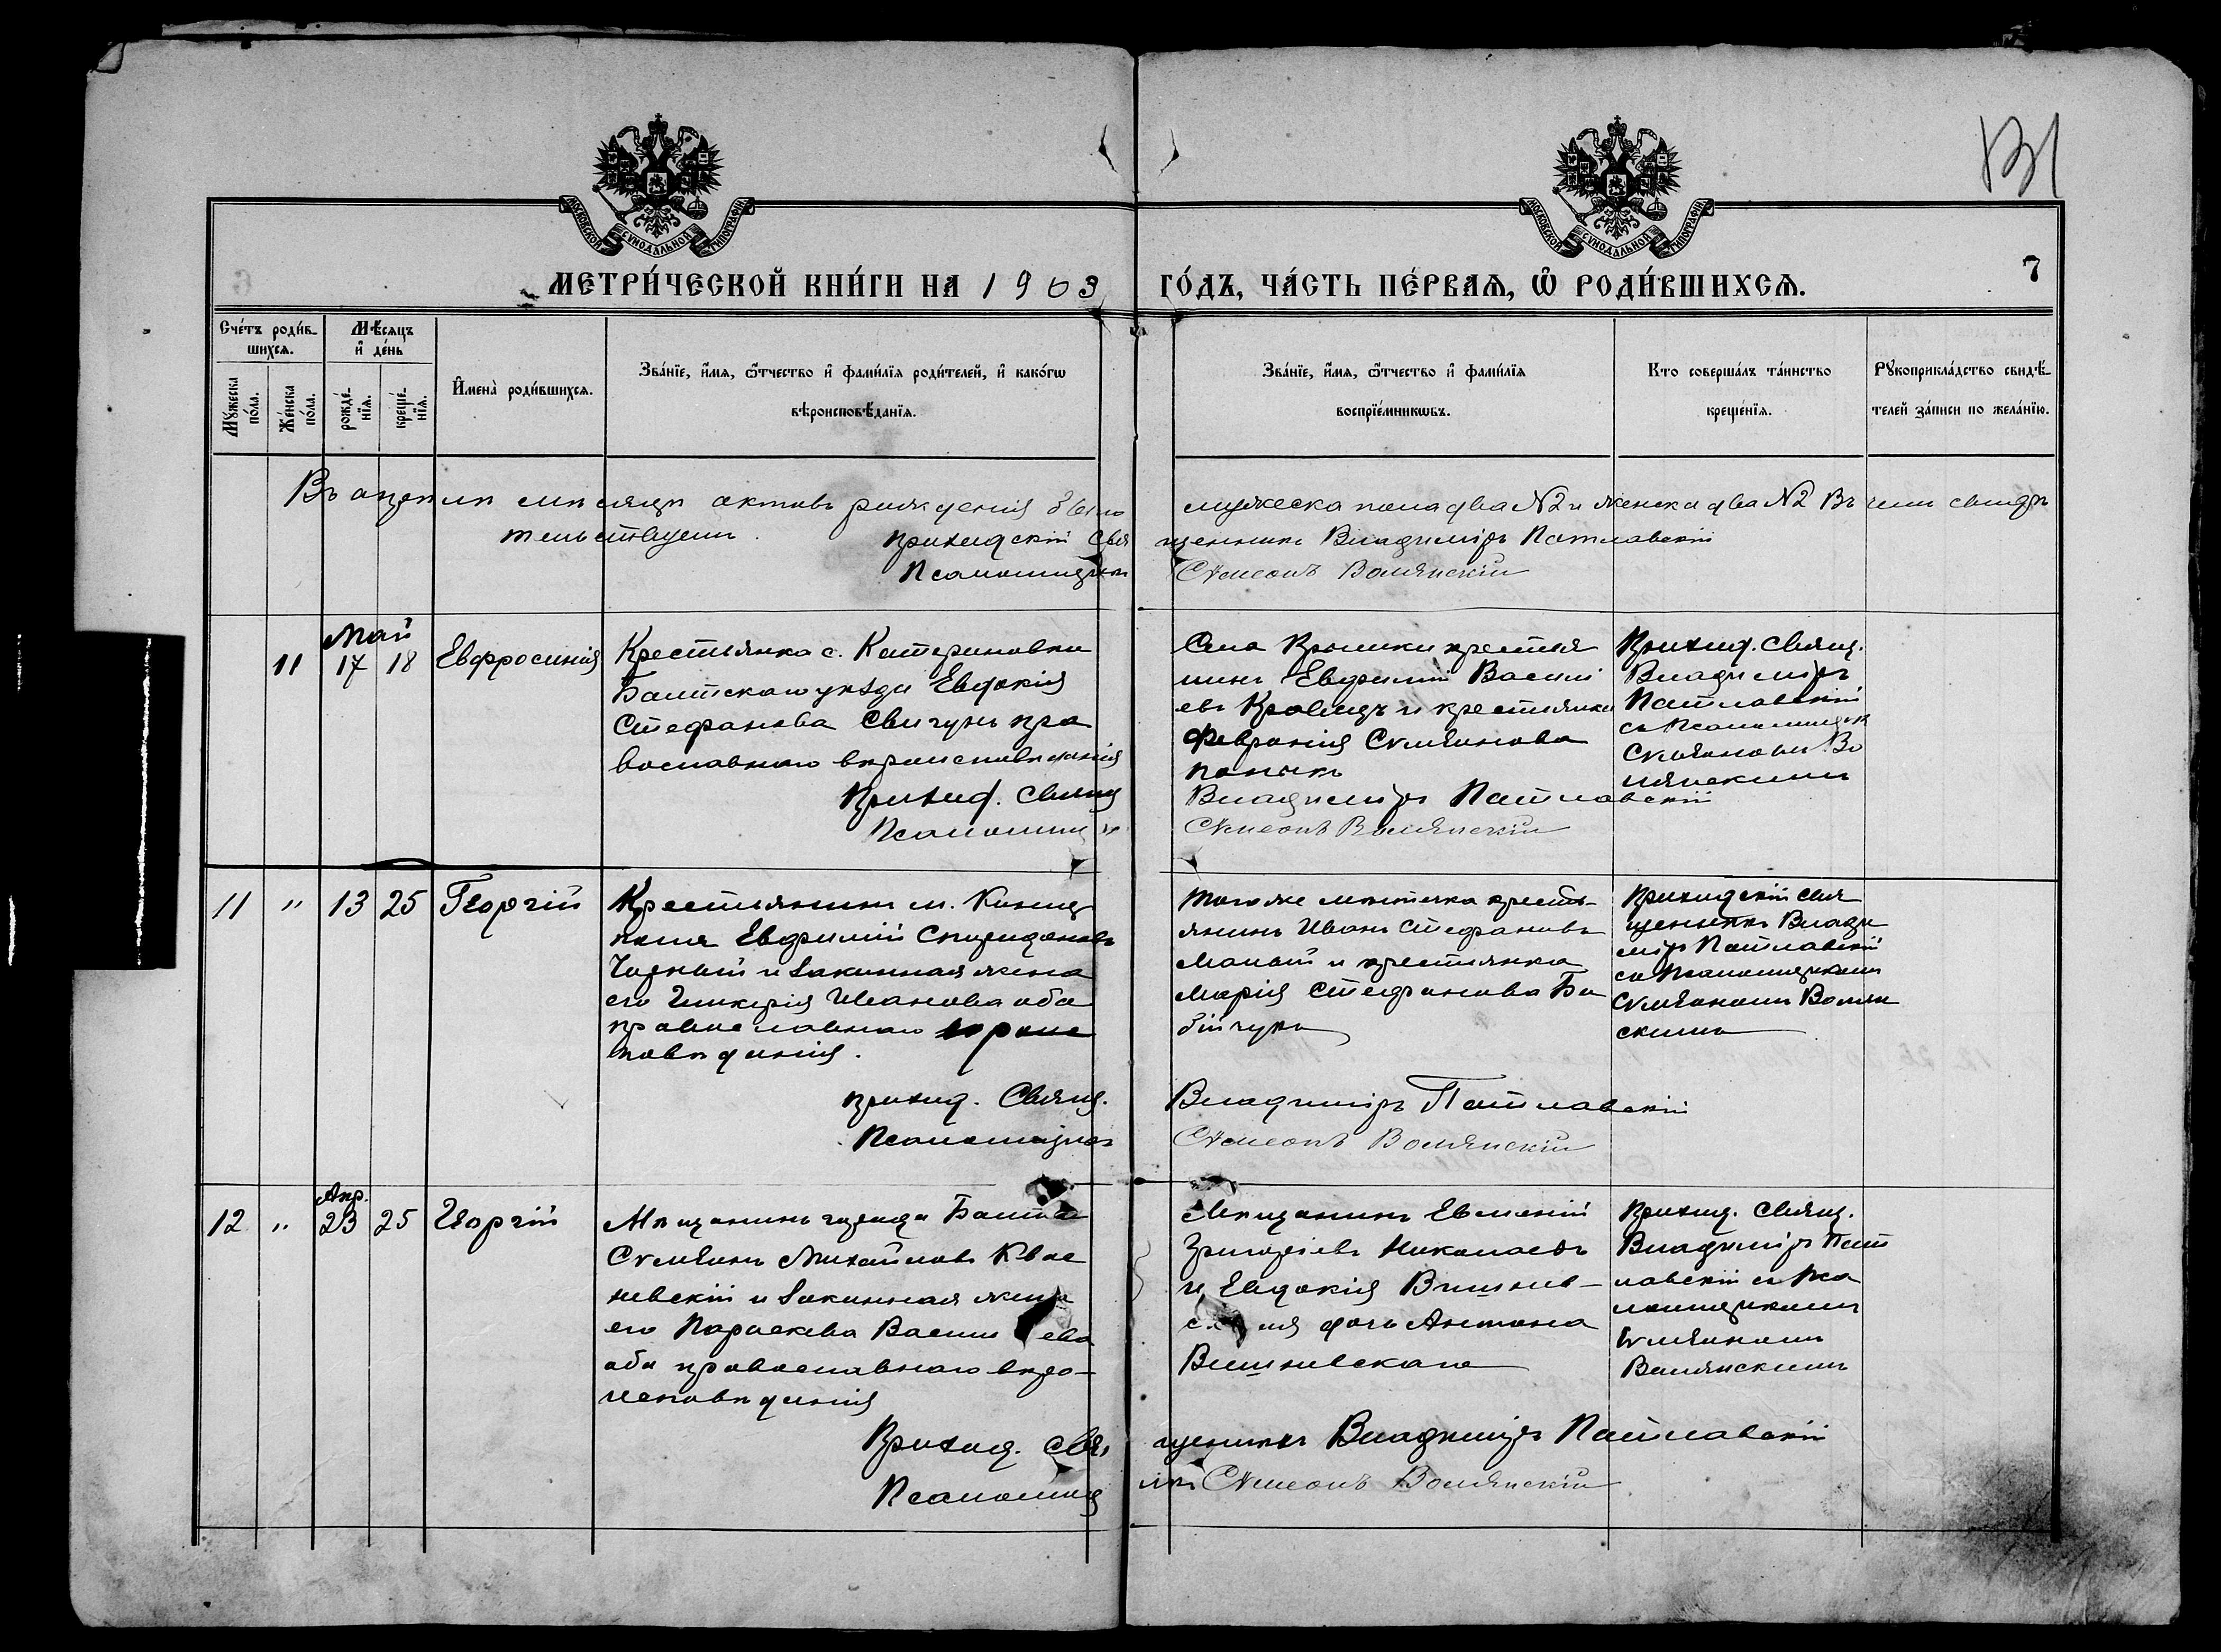 131
МОСКОВСКОЙ СѴНОДАЛЬНОЙ ТИПОГРАФІИ
МОСКОВСКОЙ СѴНОДАЛЬНОЙ ТИПОГРАФІИ
МЕТРИ́ЧЕСКОЙ КНИ́ГИ НА 1903 ГО́ДЪ, ЧА́СТЬ ПЕ́РВАѦ, Ѽ РОДИ́ВШИХСѦ. 7
Сче́тъ роди́в-
шихсѧ.
Мꙋ́жеска по́ла.
Же́нска по́ла.
Мѣ́сѧцъ
и҆ де́нь
рожде́-
нїѧ.
креще́-
нїѧ.
И҆мена̀ роди́вшихсѧ.
Зва́нїе, и҆́мѧ, ѻ҆́тчество и҆ фами́лїѧ роди́телей, и҆ како́гѡ
вѣроисповѣ́данїѧ.
Зва́нїе, и҆́мѧ, ѻ҆́тчество и҆ фами́лїѧ
воспрїе́мникѡвъ.
Кто соверша́лъ та́инство
креще́нїѧ.
Рꙋкоприкла́дство свидѣ́-
телей за́писи по жела́нїю.
Въ апрѣлѣ мѣсяцѣ актовъ рожденія было мужеска пола два №2 и женска два №2 Въ чем свидѣ
тельствуемъ. приходскій Свя щенникъ Владиміръ Патлавскій
Псаломщикъ Сѵмеонъ Волянскій
11
Май
17 18
Евфросинія
Крестьянка с. Катериновки
Балтскаго уѣзда Евдокія
Стефанова Свигунъ пра
вославнаго вѣроисповѣданія
Приход. Свящ
Псаломщик
Села Крымки крестья
нинъ Евфимій Васильі
евъ Кравецъ и крестьянка
Февронія Сѵмеонова
Владиміръ Патлавскій
Сѵмеонъ Волянскій
Приход. Свящ.
Владиміръ
Патлавскій
съ Псаломщик
Сѵмеономъ Во
лянскимъ
11 " 13 25 Георгій
Крестьянинъ м.
Евфимій Спиридоновъ
Чорный и законная жена
его Гликерія Иванова оба
православнаго вѣроис
повѣданія.
приход. Свящ.
Псаломщикъ
того же мѣстечка кресть-
янинъ Иванъ Стефановъ
Малый и крестьянка
Марія Стефанова Ба
бійчукъ
Владиміръ Патлавскій
Сѵмеонъ Волянскій
Приходскій Свя
щенникъ Влади
міръ Патлавскій
съ Псаломщикомъ
Сѵмеономъ Волян
скимъ
12 "
Апр.
23 25 Георгій
Мѣщанинъ города Балта
Сѵмеонъ Михайловъ Квас
невскій и законная жена
его Параскева Васильева
оба православнаго вѣро-
исповѣданія
Приход. Свя
Псаломщ
Мѣщанинъ Евменій
Григоріевъ Николаевъ
и Евдокія Вишнев-
ская дочь Антона
Вишневскаго
щенникъ Владиміръ Патлавскій
икъ Сѵмеонъ Волянскій
Приход. Свящ.
Владиміръ Пат
лавскій съ Пса
ломщикомъ
Сѵмеономъ
Волянскимъ